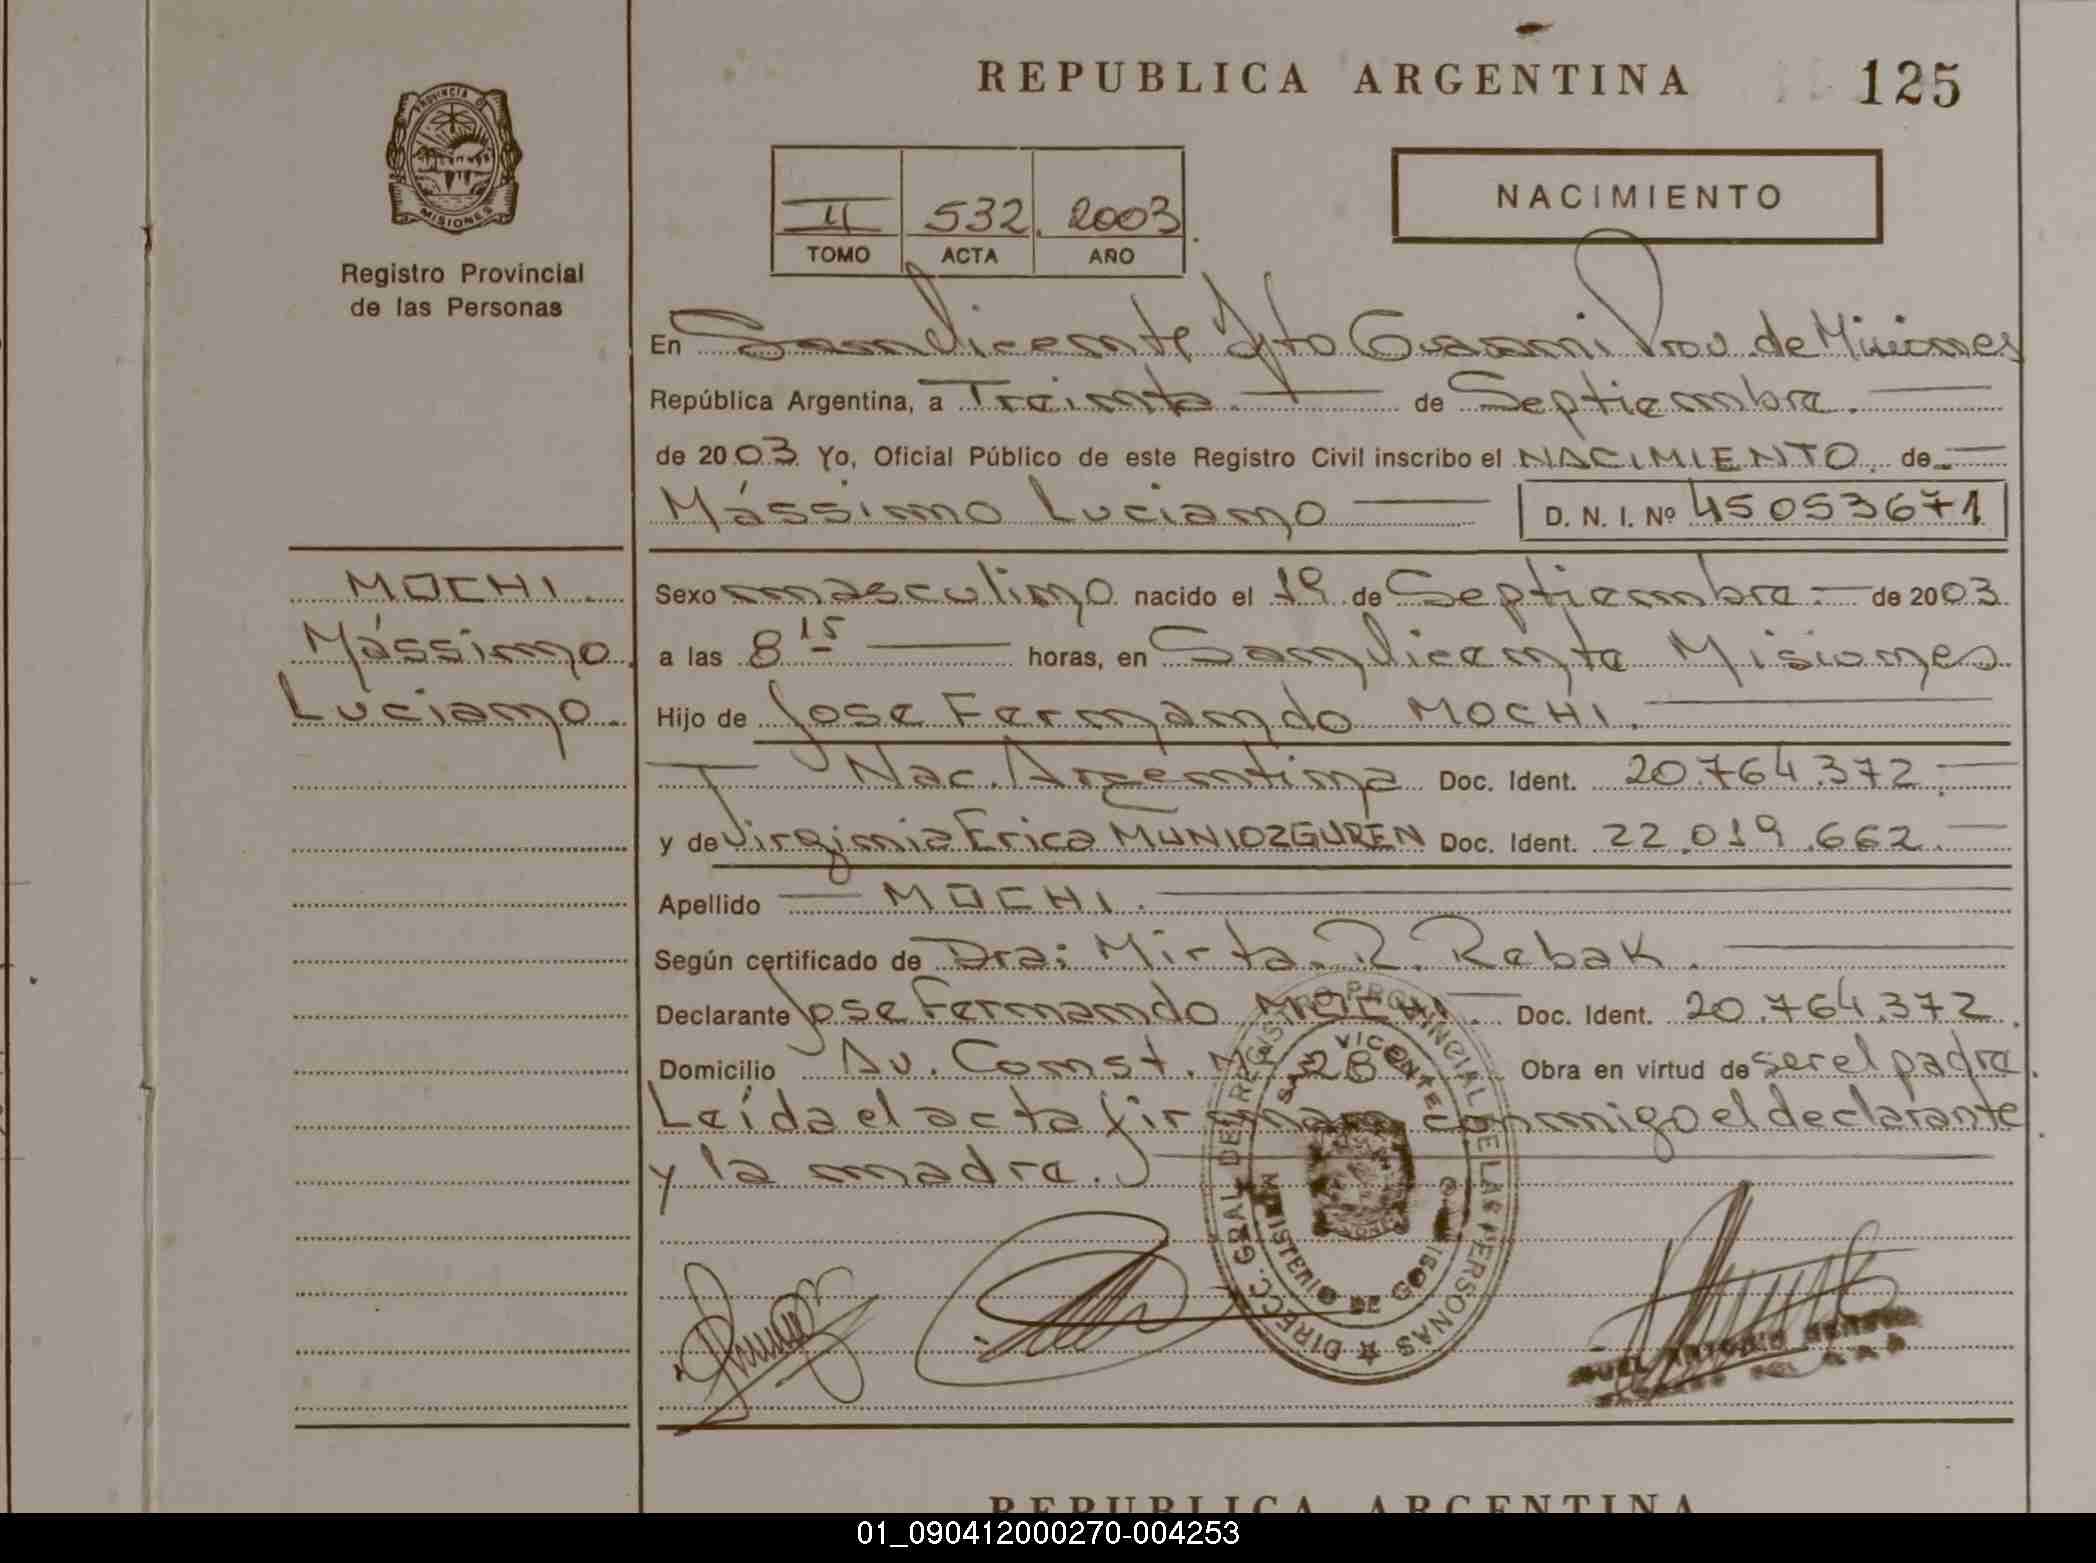 REPUBLICA ARGENTINA 125
PROVINCIA DE
MISIONES
Registro Provincial
de las Personas
II 532. 2003.
TOMO ACTA AÑO
NACIMIENTO
En San Vicente Dto Guarani Prov. de Misiones
República Argentina, a Treinta. de Septiembre.
de 2003. Yo, Oficial Público de este Registro Civil inscribo el NACIMIENTO. de
Mássimo Luciano D. N. I. Nº 45053671
MOCHI.
Mássimo
Luciano.
Sexo masculino nacido el 19 de Septiembre. de 2003.
a las 8 15 horas, en San Vicente Misiones
Hijo de Jose Fernando MOCHI.
Nac. Argentina Doc. Ident. 20.764.372.
y de Virginia Erica MUNIOZGUREN Doc. Ident. 22.019.662.
Apellido MOCHI.
Según certificado de Dra: Mirta. R. Rebak.
Declarante Jose Fernando MOCHI. Doc. Ident. 20.764.372.
Domicilio Av. Const. Nº 28 Obra en virtud de ser el padre.
Leída el acta firman conmigo el declarante
y la madre.
DIRECC. GRAL. DEL REGISTRO PROVINCIAL DE LAS PERSONAS
SAN VICENTE
MINISTERIO DE GOBI
ANTONIO
REPUBLICA ARGENTINA
01_090412000270-004253